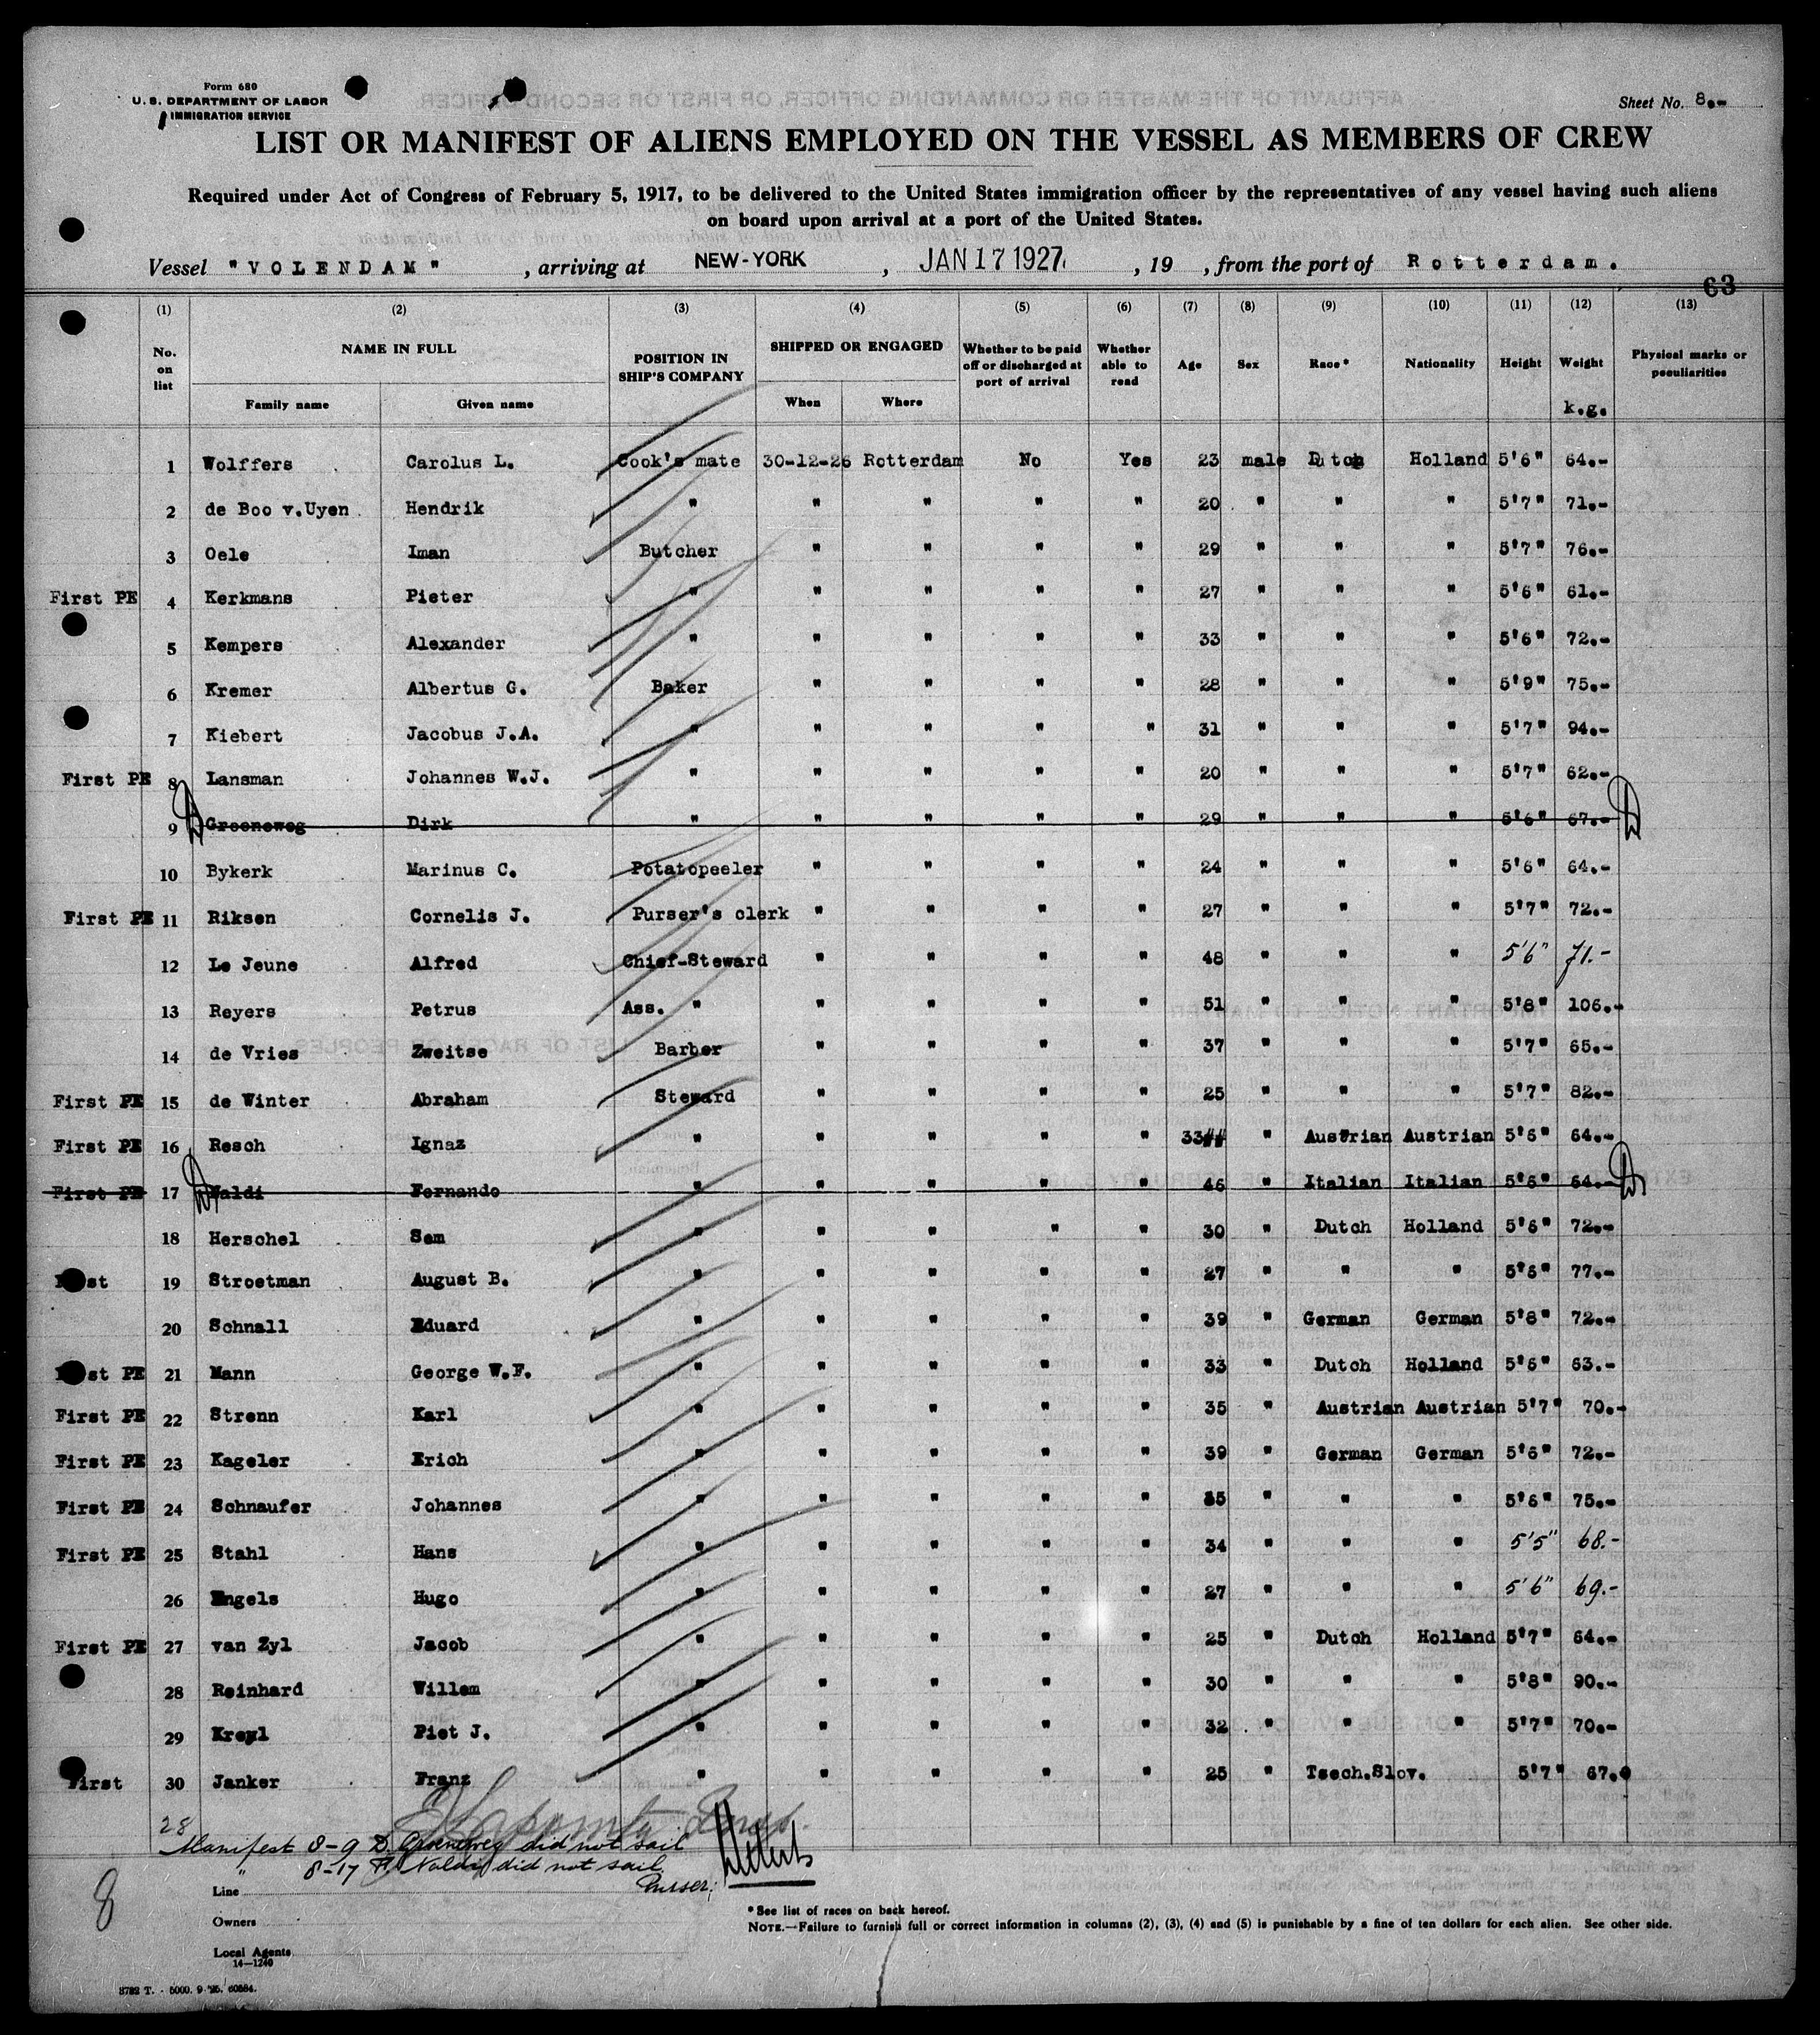 Form 680
U. S. DEPARTMENT OF LABOR
IMMIGRATION SERVICE
Sheet No. 8.-
LIST OR MANIFEST OF ALIENS EMPLOYED ON THE VESSEL AS MEMBERS OF CREW
Required under Act of Congress of February 5, 1917, to be delivered to the United States immigration officer by the representatives of any vessel having such aliens
on board upon arrival at a port of the United States.
Vessel "VOLENDAM" , arriving at NEW-YORK , JAN 17 1927 , 19 , from the port of Rotterdam.
63
(1) (2) (3) (4) (5) (6) (7) (8) (9) (10) (11) (12) (13)
No. on list NAME IN FULL POSITION IN SHIP'S COMPANY SHIPPED OR ENGAGED Whether to be paid off or discharged at port of arrival Whether able to read Age Sex Race* Nationality Height Weight Physical marks or peculiarities
Family name Given name When Where k.g.
1 Wolffers Carolus L. Cook's mate 30-12-26 Rotterdam No Yes 23 male Dutch Holland 5'6" 64.-
2 de Boo v.Uyen Hendrik " " " " " 20 " " " 5'7" 71.-
3 Oele Iman Butcher " " " " 29 " " " 5'7" 76.-
First PE 4 Kerkmans Pieter " " " " " 27 " " " 5'6" 61.-
5 Kempers Alexander " " " " " 33 " " " 5'6" 72.-
6 Kremer Albertus G. Baker " " " " 28 " " " 5'9" 75.-
7 Kiebert Jacobus J.A. " " " " " 31 " " " 5'7" 94.-
First PE 8 Lansman Johannes W.J. " " " " " 20 " " " 5'7" 62.-
9 Groeneweg Dirk " " " " " 29 " " " 5'6" 67.-
10 Bykerk Marinus C. Potatopeeler " " " " 24 " " " 5'6" 64.-
First PE 11 Riksen Cornelis J. Purser's clerk " " " " 27 " " " 5'7" 72.-
12 Le Jeune Alfred Chief-Steward " " " " 48 " " " 5'6" 71.-
13 Reyers Petrus Ass. " " " " " 51 " " " 5'8" 106.-
14 de Vries Zweitse Barber " " " " 37 " " " 5'7" 65.-
First PE 15 de Winter Abraham Steward " " " " 25 " " " 5'7" 82.-
First PE 16 Resch Ignaz " " " " " 33 " Austrian Austrian 5'6" 64.-
First PE 17 Naldi Fernando " " " " " 46 " Italian Italian 5'6" 64.-
18 Herschel Sem " " " " " 30 " Dutch Holland 5'6" 72.-
First 19 Stroetman August B. " " " " " 27 " " " 5'6" 77.-
20 Schnall Eduard " " " " " 39 " German German 5'8" 72.-
First PE 21 Mann George W.F. " " " " " 33 " Dutch Holland 5'6" 63.-
First PE 22 Strenn Karl " " " " " 35 " Austrian Austrian 5'7" 70.-
First PE 23 Kageler Erich " " " " " 39 " German German 5'6" 72.-
First PE 24 Schnaufer Johannes " " " " " 35 " " " 5'6" 75.-
First PE 25 Stahl Hans " " " " " 34 " " " 5'5" 68.-
26 Engels Hugo " " " " " 27 " " " 5'6" 69.-
First PE 27 van Zyl Jacob " " " " " 25 " Dutch Holland 5'7" 64.-
28 Reinhard Willem " " " " " 30 " " " 5'8" 90.-
29 Kreyl Piet J. " " " " " 32 " " " 5'7" 70.-
First 30 Janker Franz " " " " " 25 " Tsech.Slov. 5'7" 67.
28
Manifest 8-9 D. Groeneweg did not sail
" 8-17 F. Naldi did not sail
Purser;
8
Line
Owners
Local Agents
14—1240
* See list of races on back hereof.
NOTE.—Failure to furnish full or correct information in columns (2), (3), (4) and (5) is punishable by a fine of ten dollars for each alien. See other side.
3782 T. - 5000. 9-'26. 60584.